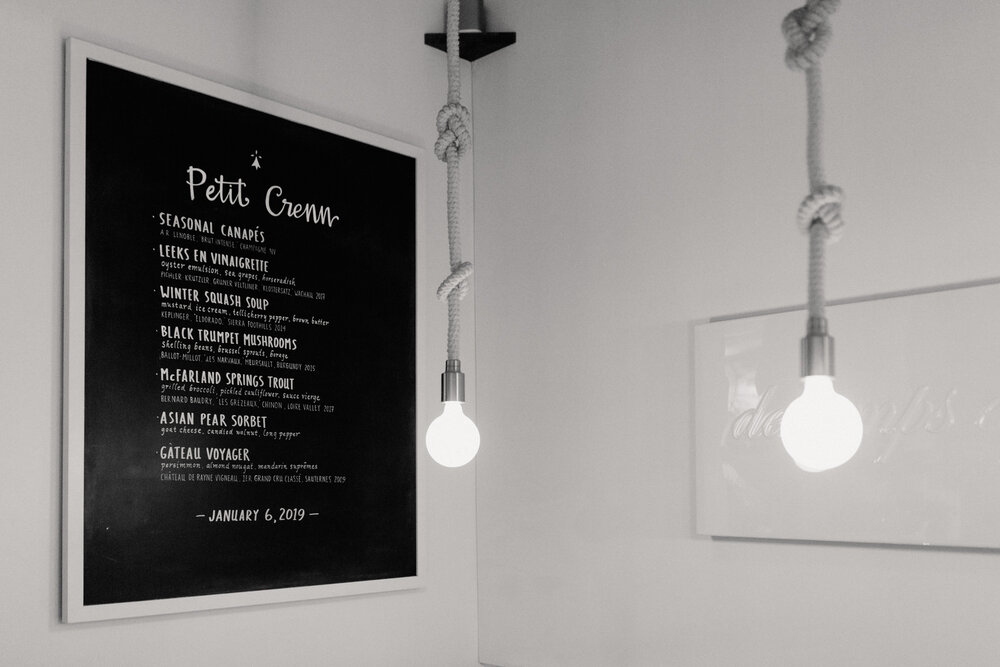 Petit Crenn
· SEASONAL CANAPÉS
A.R. LENOBLE, 'BRUT INTENSE', CHAMPAGNE NV
· LEEKS EN VINAIGRETTE
oyster emulsion, sea grapes, horseradish
PICHLER-KRUTZLER, GRÜNER VELTLINER, 'KLOSTERSATZ,' WACHAU, 2017
· WINTER SQUASH SOUP
mustard ice cream, tellicherry pepper, brown butter
KEPLINGER, 'ELDORADO,' SIERRA FOOTHILLS, 2014
· BLACK TRUMPET MUSHROOMS
shelling beans, brussel sprouts, borage
BALLOT-MILLOT, 'LES NARVAUX,' MEURSAULT, BURGUNDY 2015
· McFARLAND SPRINGS TROUT
grilled broccoli, pickled cauliflower, sauce vierge
BERNARD BAUDRY, 'LES GRÉZEAUX,' CHINON, LOIRE VALLEY 2017
· ASIAN PEAR SORBET
goat cheese, candied walnut, long pepper
· GÂTEAU VOYAGER
persimmon, almond nougat, mandarin suprêmes
CHÂTEAU DE RAYNE VIGNEAU, 1ER GRAND CRU CLASSÉ, SAUTERNES 2009
— JANUARY 6, 2019 —